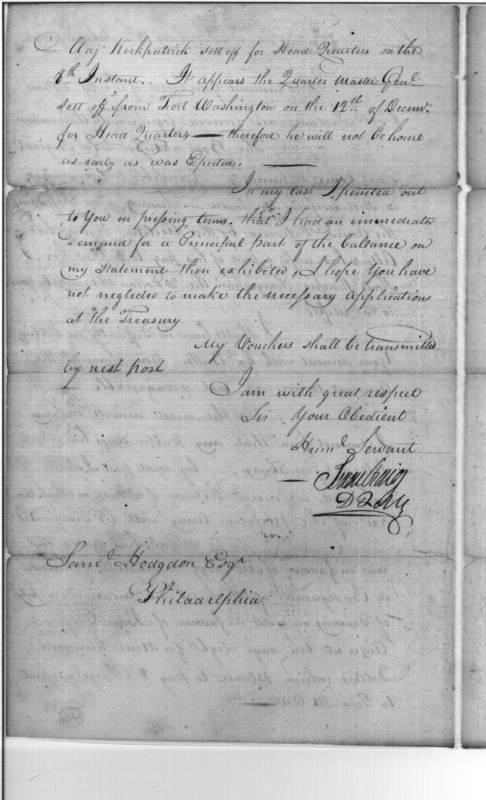 Maj. Kirkpatrick sett off for Head Quarters on the
8th Instant. It appears the Quarter Master Genl
sett off from Fort Washington on the 12th of Decemr.
for Head Quarters — therefore he will not be home
as early as was Expected. —
In my last I pointed out
to You in pressing terms. that I had an immediate
Demand for a Principal Part of the ballance on
my statement then exhibited, I hope You have
not neglected to make the necessary Application
at the Treasury
My Vouchers shall be transmitted
by next post
I am with great respect
Sir Your Obedient
Humb. Servant
Isaac Craig
D Q M
Saml. Hodgdon Esqr
Philadelphia